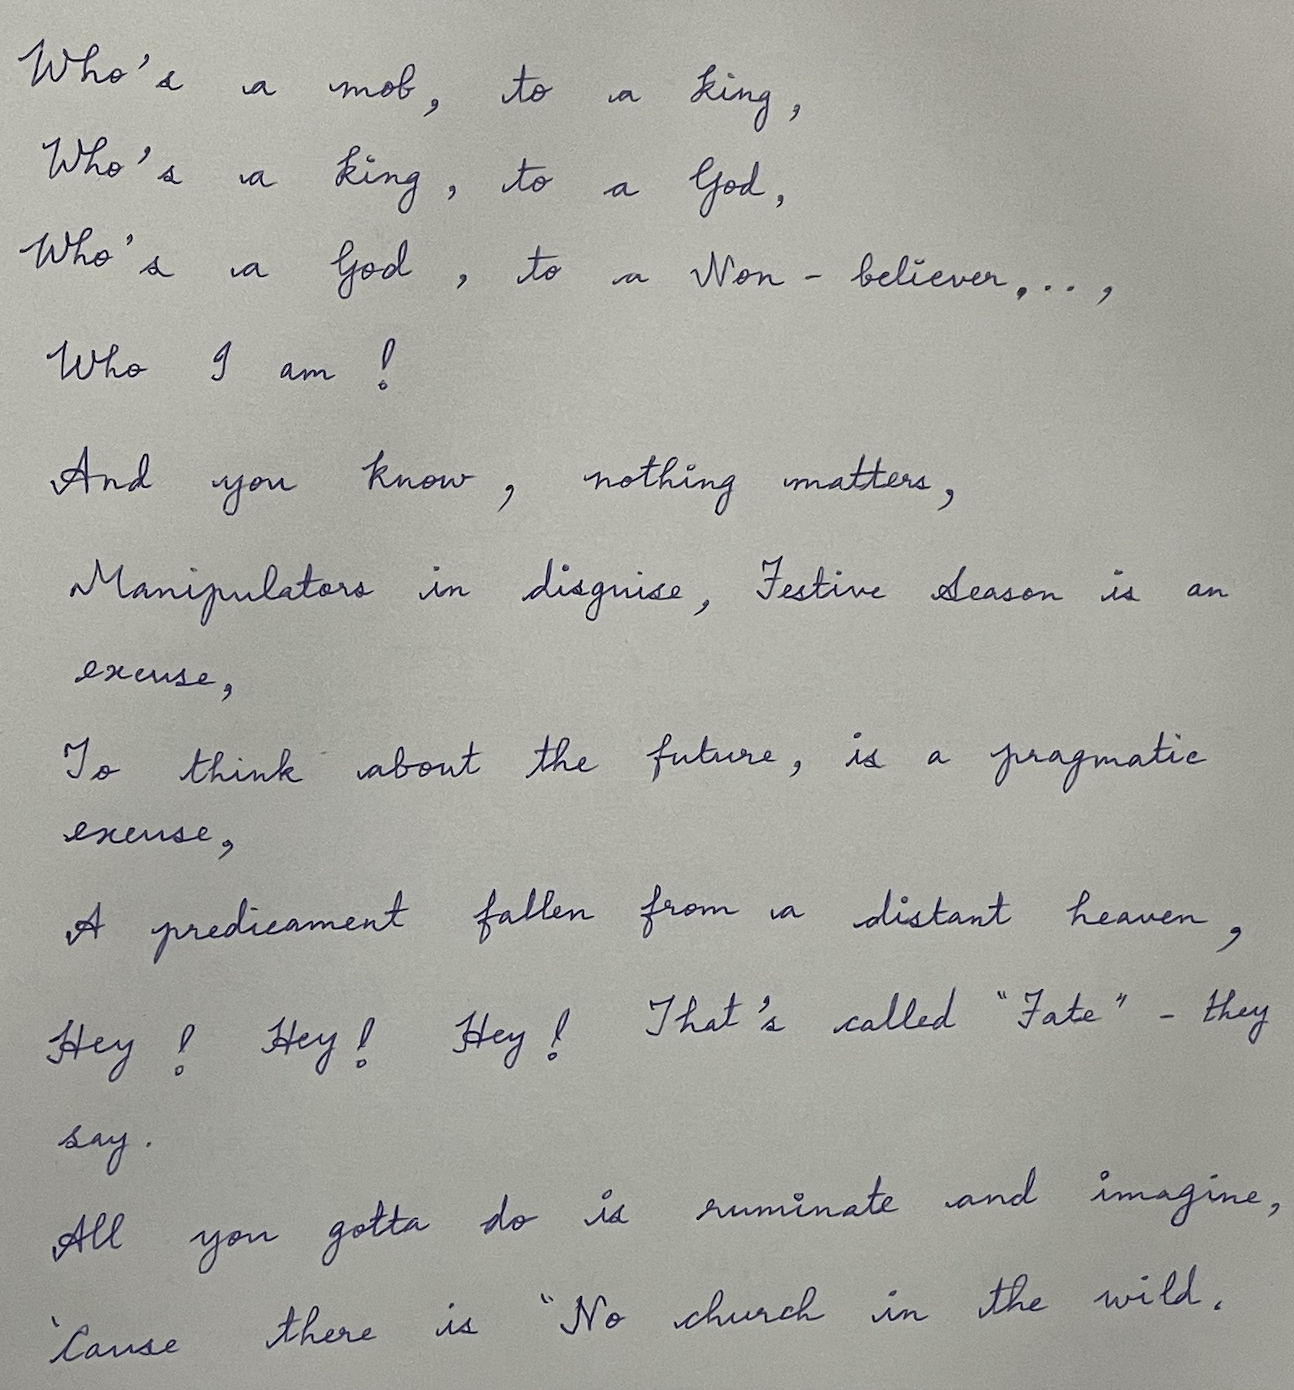 Who's a mob, to a king,
Who's a king, to a God,
Who's a God, to a Non - believer,..,
Who I am!
And you know, nothing matters,
Manipulators in disguise, Festive Season is an
excuse,
To think about the future, is a pragmatic
excuse,
A predicament fallen from a distant heaven,
Hey! Hey! Hey! That's called "Fate" - they
say.
All you gotta do is ruminate and imagine,
'Cause there is "No church in the wild.